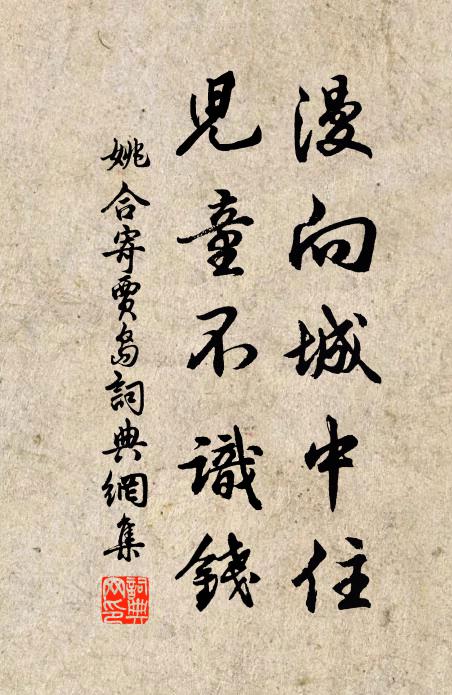 漫向城中住
兒童不識錢
姚合寄賈島詞典網集
詞典網印